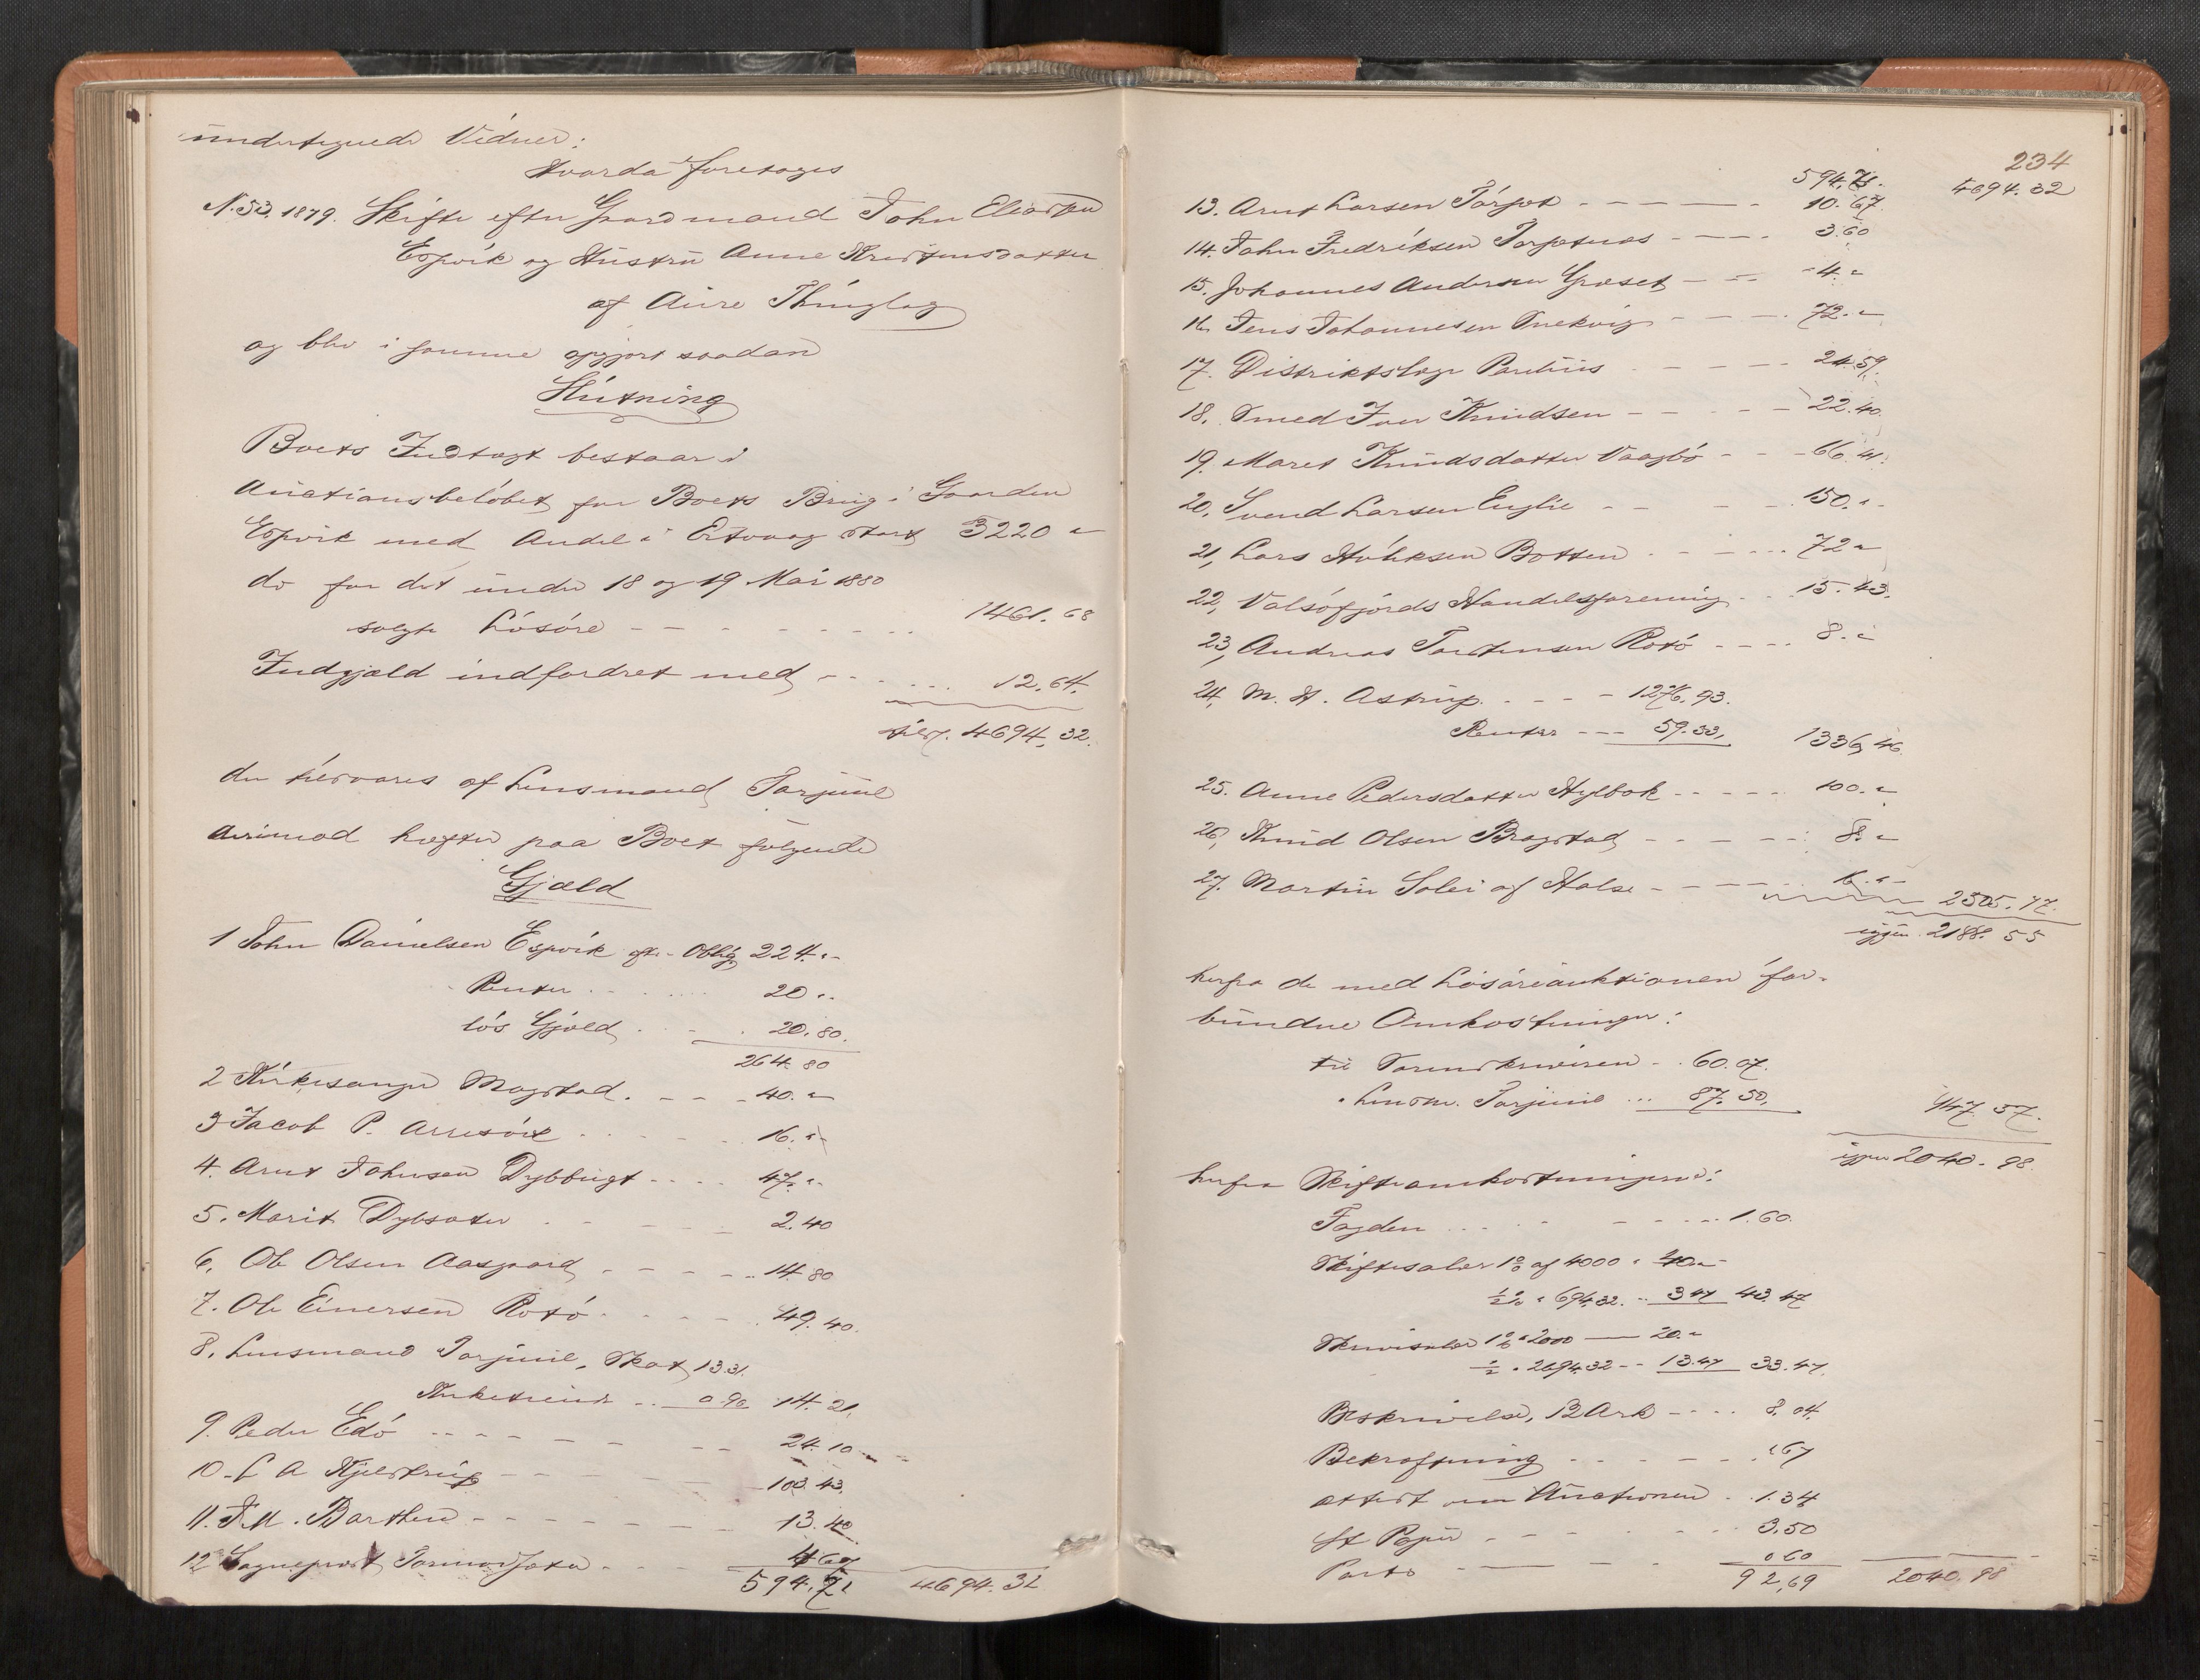 undertegnede Vidner:
Hvorda foretoges
N. 53. 1879. Skifte efter Gaardmand John Eliassen
Espvik og Hustru Anne Kristensdatter
af Aure Thinglag
og blev i samme opgjort saadan
Slutning
Boets Indtægt bestaar i
Auctionsbeløbet for Boets Brug i Gaarden
Espvik med Andel i Ertvaag stort 3220 "
do for det under 18 og 19 Mai 1880
solgte Løsøre - - - 1461. 68
Indgjæld indfordret med - - - 12. 64.
tils. 4694, 32.
der tilsvares af Lensmand Tarjuul
derimod hefter paa Boet følgende
Gjæld
1 John Danielsen Espvik eft. Oblig 224. "
Renter . . . 20 "
løs Gjæld . . . 20. 80.
264. 80
2 Kirkesanger Magstad . - - 40. "
3 Jacob P. Arnsøre . . . 16. "
4. Arnt Johnsen Dybbugt - - - 47. "
5. Marit Dybsæter . . . 2. 40
6. Ole Olsen Aasgaard - - - 14. 80
7. Ole Einersen Rotø . . . 49. 40.
8. Lensmand Tarjuul, Skat 13.31.
Kirketiende . . 0.90 14. 21.
9. Peder Edø - - - 24. 10
10. L A Kjelstrup - - - 103. 43.
11. J. M. Barthen - - - 13. 40
12 Sognepræst Tarmodsæter . . . 4 67
594. 71 4694. 32
234
594. 71. 4694. 32
13. Arnt Larsen Torjet - - - 10. 67.
14. John Fredriksen Torjetnes - - - 3. 60
15. Johannes Andersen Græset - - - 4. "
16. Jens Johannesen Snekvig - - - 72. "
17. Distriktslæge Parelius - - - 24. 59.
18. Smed Iver Knudsen - - - 22. 40.
19. Maret Knudsdatter Vaagbø - - - 66. 41.
20, Svend Larsen Englie - - - 150. "
21, Lars Halvksen Botten - - - 72 "
22, Valsøfjords Handelsforening . . . 15. 43.
23, Andreas Torstensen Rotø - - - 8. "
24, M. H. Astrup. - - - 1276. 93.
Renter - - - 59. 33, 1336, 46
25. Anne Pedersdatter Hylbak - - - 100. "
26, Knud Olsen Bragstad - - - 8. "
27. Martin Solei af Halse - - - 16. " 2505. 77.
igjen. 2188. 55
herfra de med Løsøreauktionen for-
bundne Omkostninger:
til Sorenskriveren - . 60. 07.
" Lensm. Tarjuul ... 87. 50, 147. 57.
igjen 2040. 98.
herfra Skifteomkostningerne:
Fogden . . . 1. 60.
Skiftesalær 1% af 4000 " 40 "
½% " 694.32. .. 3 47 43. 47
Skrivesalær 1% " 2000 — 20. "
½ " 2694.32 - - 13.47 33. 47.
Beskrivelse, 12 Ark - - - 8. 04.
Bekræftning - - - " 67
attest om Auctionen . 1. 34
St Papir - - - 3. 50
Porto - - - 0 60
92, 69 2040. 98